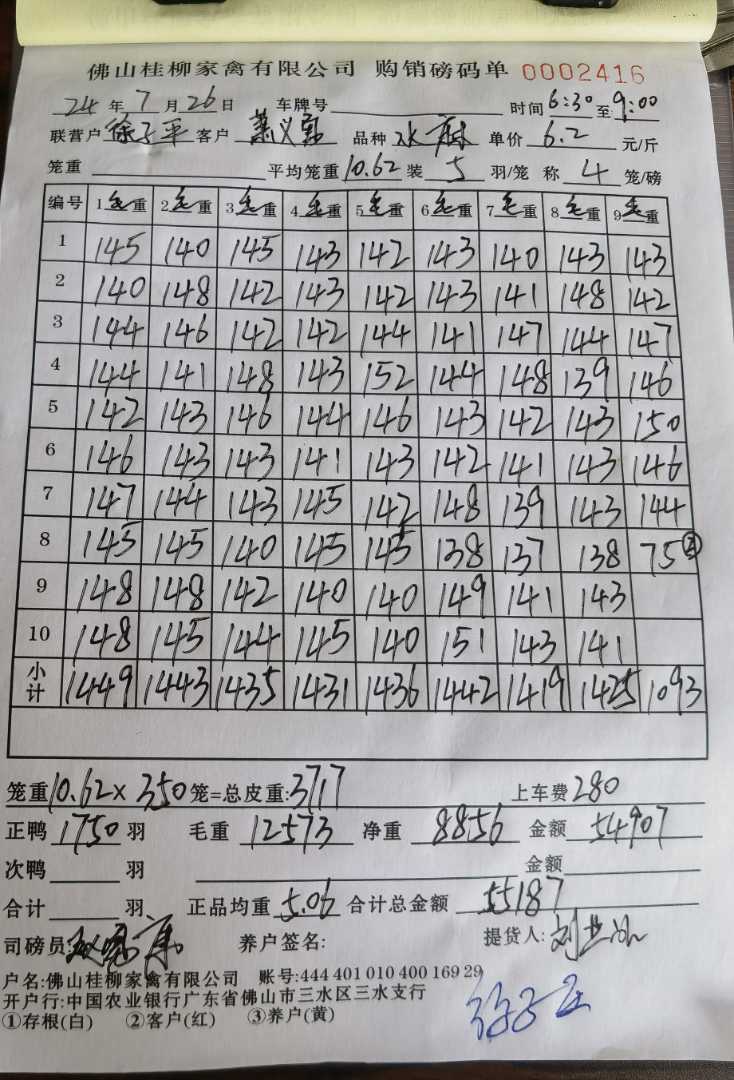 佛山桂柳家禽有限公司 购销磅码单 0002416
24 年 7 月 26 日 车牌号 时间 6:30 至 9:00
联营户 徐子平 客户 品种 水麻 单价 6.2 元/斤
笼重 平均笼重 10.62 装 5 羽/笼 称 4 笼/磅
编号 1 毛 重 2 毛 重 3 毛 重 4 毛 重 5 毛 重 6 毛 重 7 毛 重 8 毛 重 9 毛 重
1 145 140 145 143 142 143 140 143 143
2 140 148 142 143 142 143 141 148 142
3 144 146 142 142 144 141 147 144 147
4 144 141 148 143 152 144 148 139 146
5 142 143 146 144 146 143 142 143 150
6 146 143 143 141 143 142 141 143 146
7 147 144 143 145 142 148 139 143 144
8 145 145 140 145 145 138 137 138 75
9 148 148 142 140 140 149 141 143
10 148 145 144 145 140 151 143 141
小计 1449 1443 1435 1431 1436 1442 1419 1425 1093
笼重 10.62 × 350 笼=总皮重: 3717 上车费 280
正鸭 1750 羽 毛重 12573 净重 8856 金额 54907
次鸭 羽 金额
合计 羽 正品均重 5.06 合计总金额 55187
司磅员: 养户签名: 提货人:
户名:佛山桂柳家禽有限公司 账号:444 401 010 400 169 29
开户行:中国农业银行广东省佛山市三水区三水支行
①存根(白) ②客户(红) ③养户(黄)